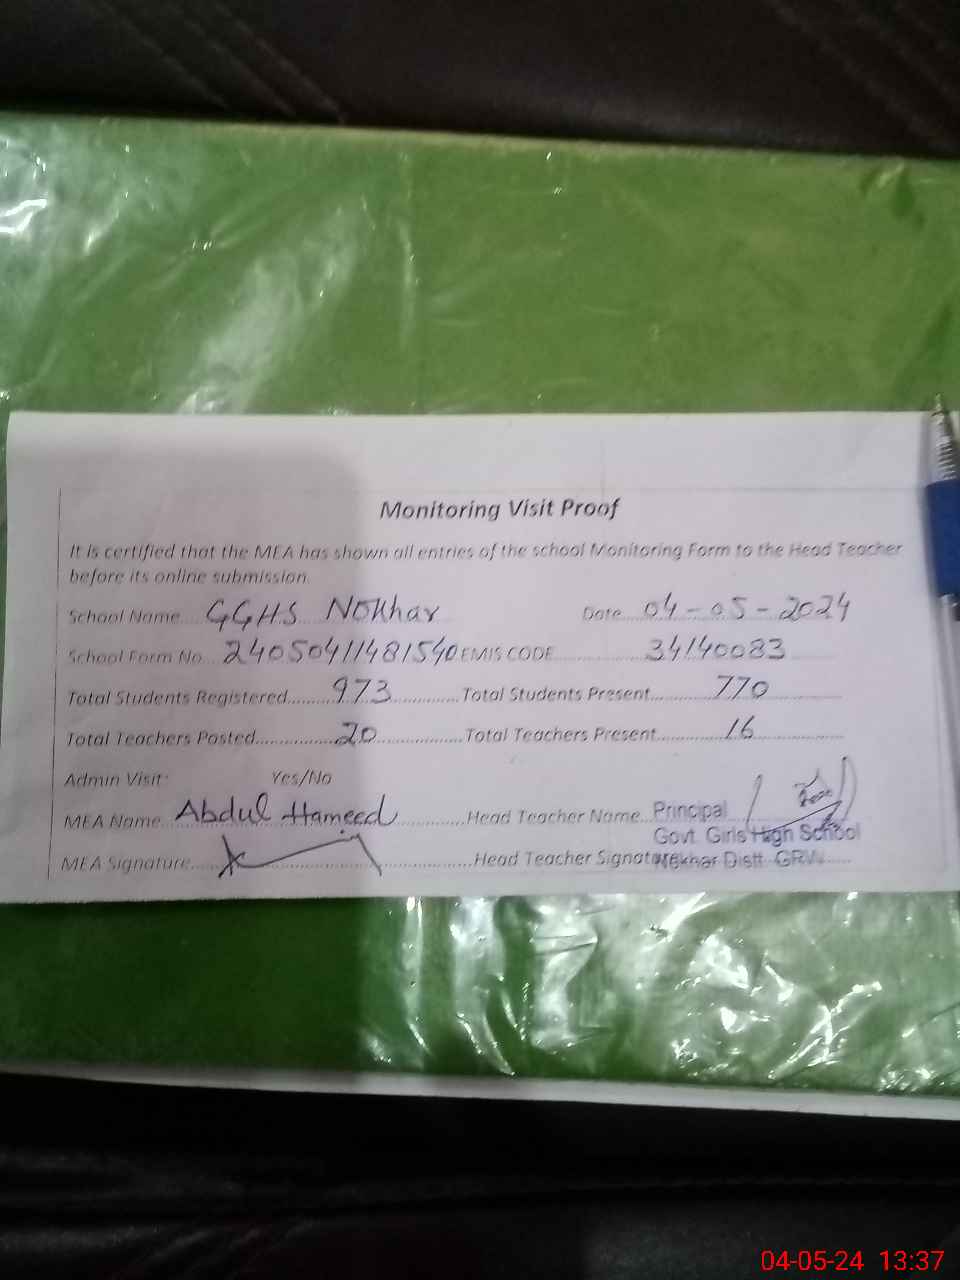 Monitoring Visit Proof
It is certified that the MEA has shown all entries of the school Monitoring Form to the Head Teacher
before its online submission.
School Name GGHS Nokhar Date 04-05-2024
School Form No. 24050411481540 EMIS CODE 34140083
Total Students Registered 973 Total Students Present 770
Total Teachers Posted 20 Total Teachers Present 16
Admin Visit: Yes/No
MEA Name Abdul Hameed Head Teacher Name Principal
Govt. Girls High School
MEA Signature Head Teacher Signature Nokhar Distt. GRW
04-05-24 13:37